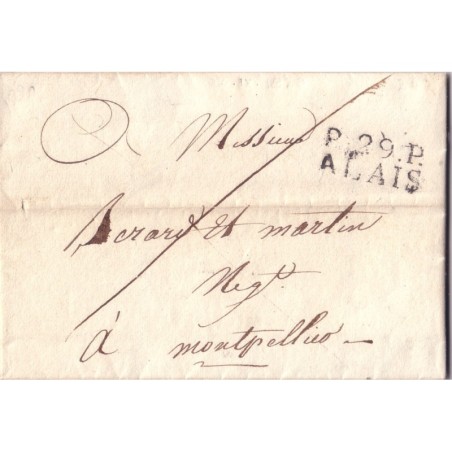 A Messieurs
P.29.P.
ALAIS
Berard et martin
Neg.ts
à montpellier